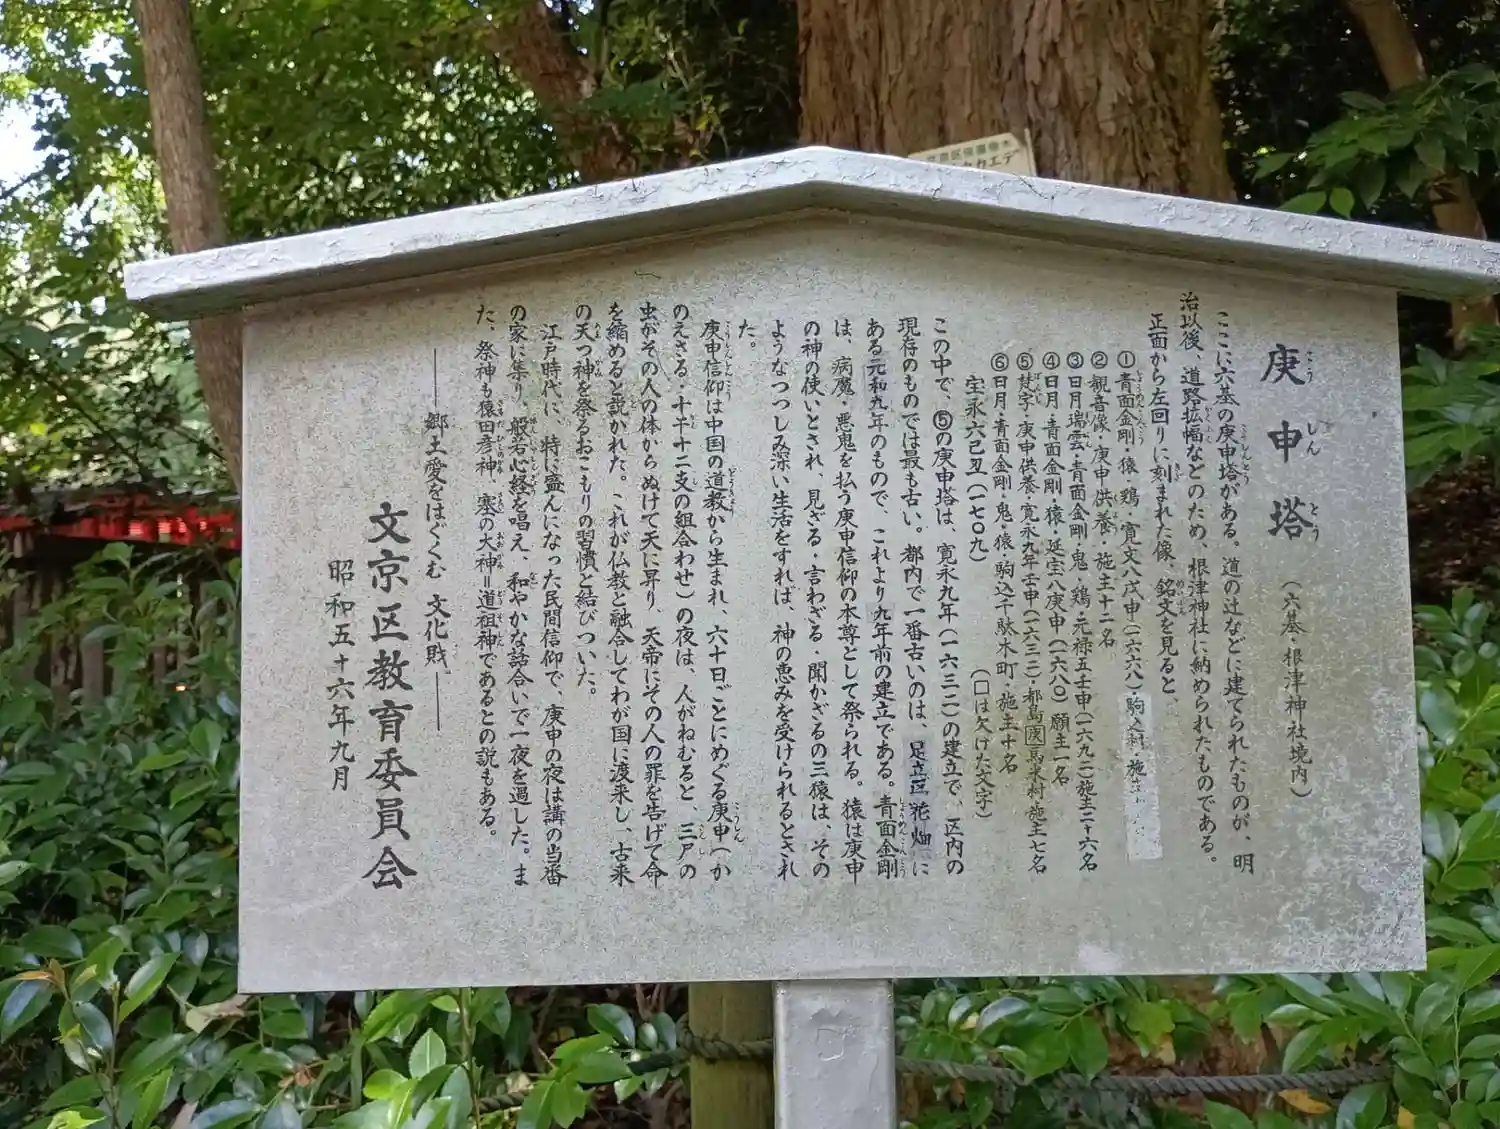 庚申塔 (六基・根津神社境内)
ここに六基の庚申塔がある。道の辻などに建てられたものが、明
治以後、道路拡幅などのため、根津神社に納められたものである。
正面から左回りに刻まれた像、銘文を見ると、
①青面金剛・猿・鶏・寛文八戊申(一六六八)・駒込村・施主
②観音像・庚申供養・施主十二名
③日月瑞雲・青面金剛・鬼・鶏・元禄五壬申(一六九二)施主二十六名
④日月・青面金剛・猿・延宝八庚申(一六八〇)願主一名
⑤梵字・庚申供養・寛永九年壬申(一六三二)・都島馬米村施主七名
⑥日月・青面金剛・鬼・猿・駒込千駄木町・施主十名
宝永六己丑(一七〇九) (□は欠けた文字)
この中で、⑤の庚申塔は、寛永九年(一六三二)の建立で、区内の
現存のものでは最も古い。都内で一番古いのは、足立区花畑に
ある元和九年のもので、これより九年前の建立である。青面金剛
は、病魔・悪鬼を払う庚申信仰の本尊として祭られる。猿は庚申
の神の使いとされ、見ざる・言わざる・聞かざるの三猿は、その
ようなつつしみ深い生活をすれば、神の恵みを受けられるとされ
た。
庚申信仰は中国の道教から生まれ、六十日ごとにめぐる庚申(か
のえさる・十干十二支の組合わせ)の夜は、人がねむると、三尸の
虫がその人の体からぬけて天に昇り、天帝にその人の罪を告げて命
を縮めると説かれた。これが仏教と融合してわが国に渡来し、古来
の天つ神を祭るおこもりの習慣と結びついた。
江戸時代に、特に盛んになった民間信仰で、庚申の夜は講の当番
の家に集り、般若心経を唱え、和やかな話合いで一夜を過した。ま
た、祭神も猿田彦神、塞の大神=道祖神であるとの説もある。
――郷土愛をはぐくむ 文化財――
文京区教育委員会
昭和五十六年九月
カエデ